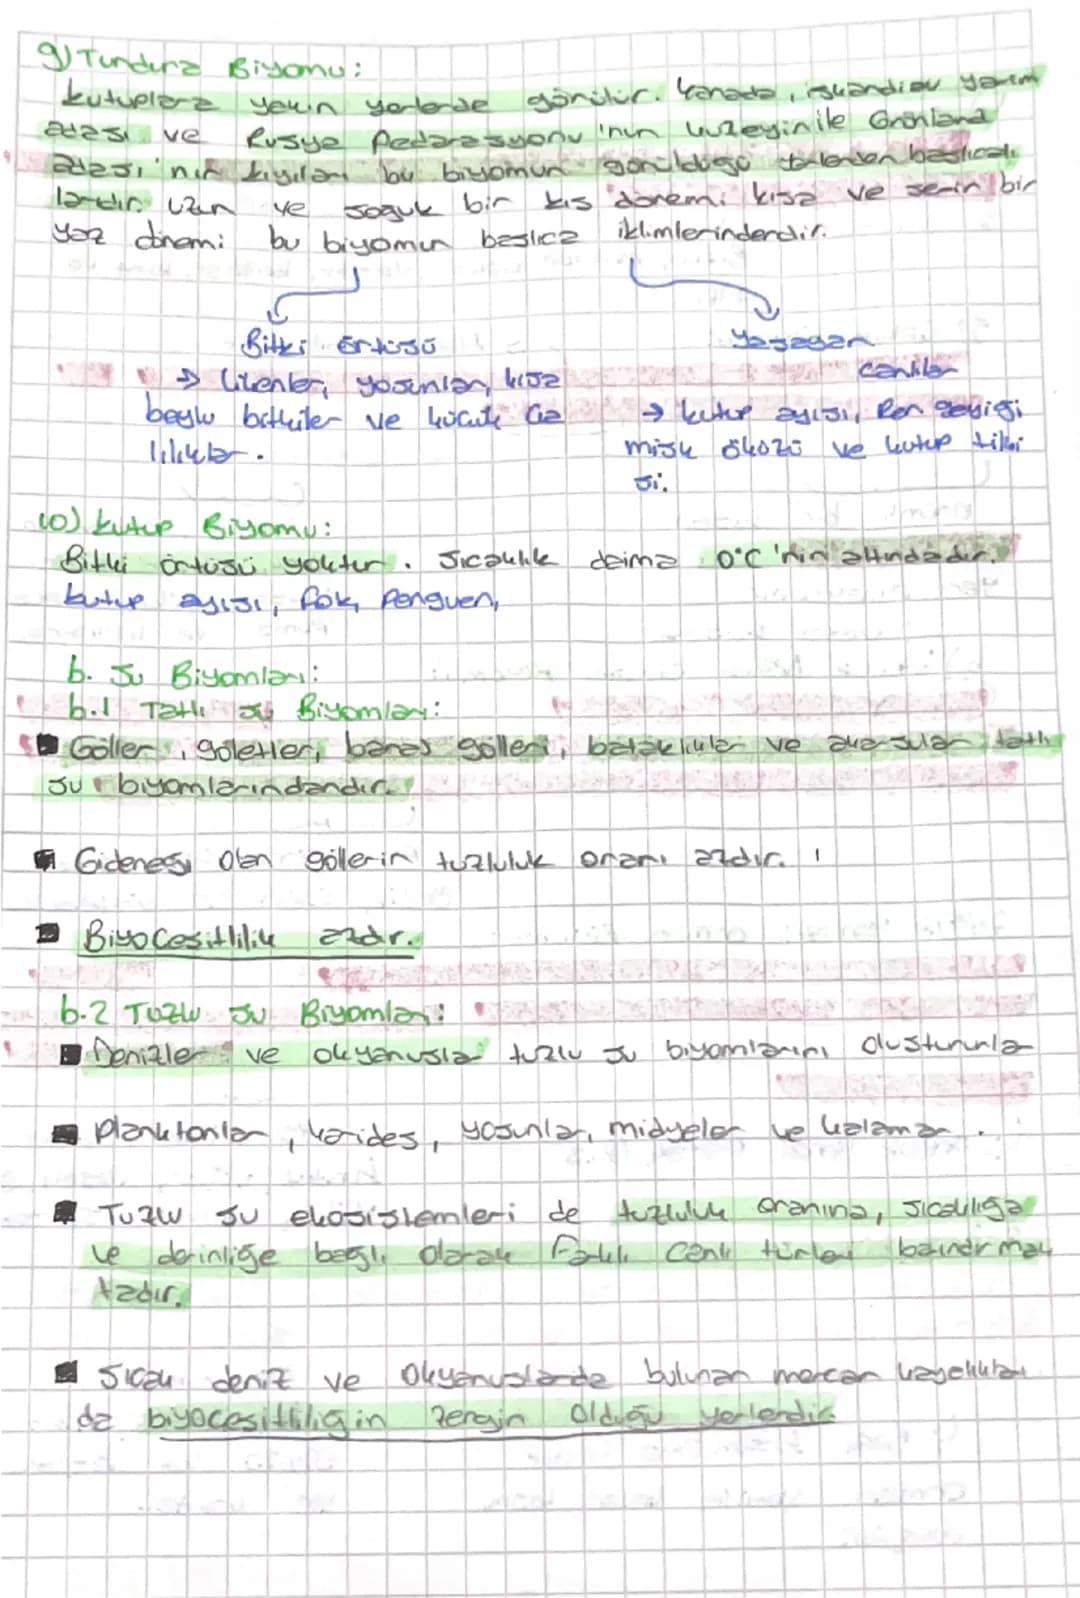 9) Tundura Biyomu:
kutuplara yakın yerlerde görülür. Kanada, iskandinav yarım
adası ve Rusya Fedarasyonu'nun kuzeyinile Grönland
adası'nın kıyıları bu biyomun görüldüğü başlıcalı
lardır. Uzun ve soğuk bir kış dönemi kısa ve serin bir
yaz dönemi bu biyomun başlıca iklimlerindendir.
Bitki örtüsü
→ Likenler, yosunlar, kısa
boylu bitkiler ve küçük ça
lılıklar.
Yaşayan
canlılar
→ kutup ayısı, Ren geyiği
misk öküzü ve kutup tilki
si.
10) kutup Biyomu:
Bitki örtüsü yoktur. Sıcaklık daima 0°C'nin altındadır.
kutup ayısı, fok, penguen,
b. Su Biyomları:
b.1 Tatlı su Biyomları:
Göller, göletler, baraj gölleri, bataklıklar ve akarsular tatlı
su biyomlarındandır.
Gideneği olan göllerin tuzluluk oranı azdır. !
Biyoçeşitlilik azdır.
b.2 Tuzlu su Biyomları:
Denizler ve okyanuslar tuzlu su biyomlarını oluştururlar
Planktonlar, karides, yosunlar, midyeler ve kalamar.
Tuzlu su ekosistemleri de tuzluluk oranına, sıcaklığa
ve derinliğe bağlı olarak Farklı canlı türleri barındırmak
tadır.
Sıcak deniz ve Okyanuslarda bulunan mercan kayalıkları
da biyoçeşitliliğin zengin olduğu yerlerdir.